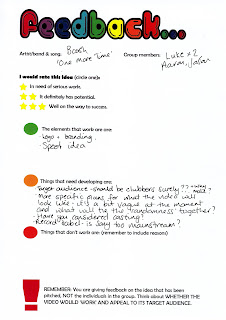 Feedback...
Artist/band & song. Bcosh 'One More Time'
Group members: Luke x 2 Aaron, Jason
I would rate this idea (circle one):
In need of serious work.
It definitely has potential.
Well on the way to success.
The elements that work are:
logo + branding.
Sports idea
Things that need developing are:
Target audience - should be clubbers surely??
More specific plans for what the video will
look like - it's a bit vague at the moment
and what will tie the 'randomness' together?
- Have you considered casting?
- Record label - is Sony too mainstream?
Things that don't work: (remember to include reasons)
REMEMBER: You are giving feedback on the idea that has been
pitched, NOT the individuals in the group. Think about WHETHER THE
VIDEO WOULD WORK AND APPEAL TO ITS TARGET AUDIENCE.